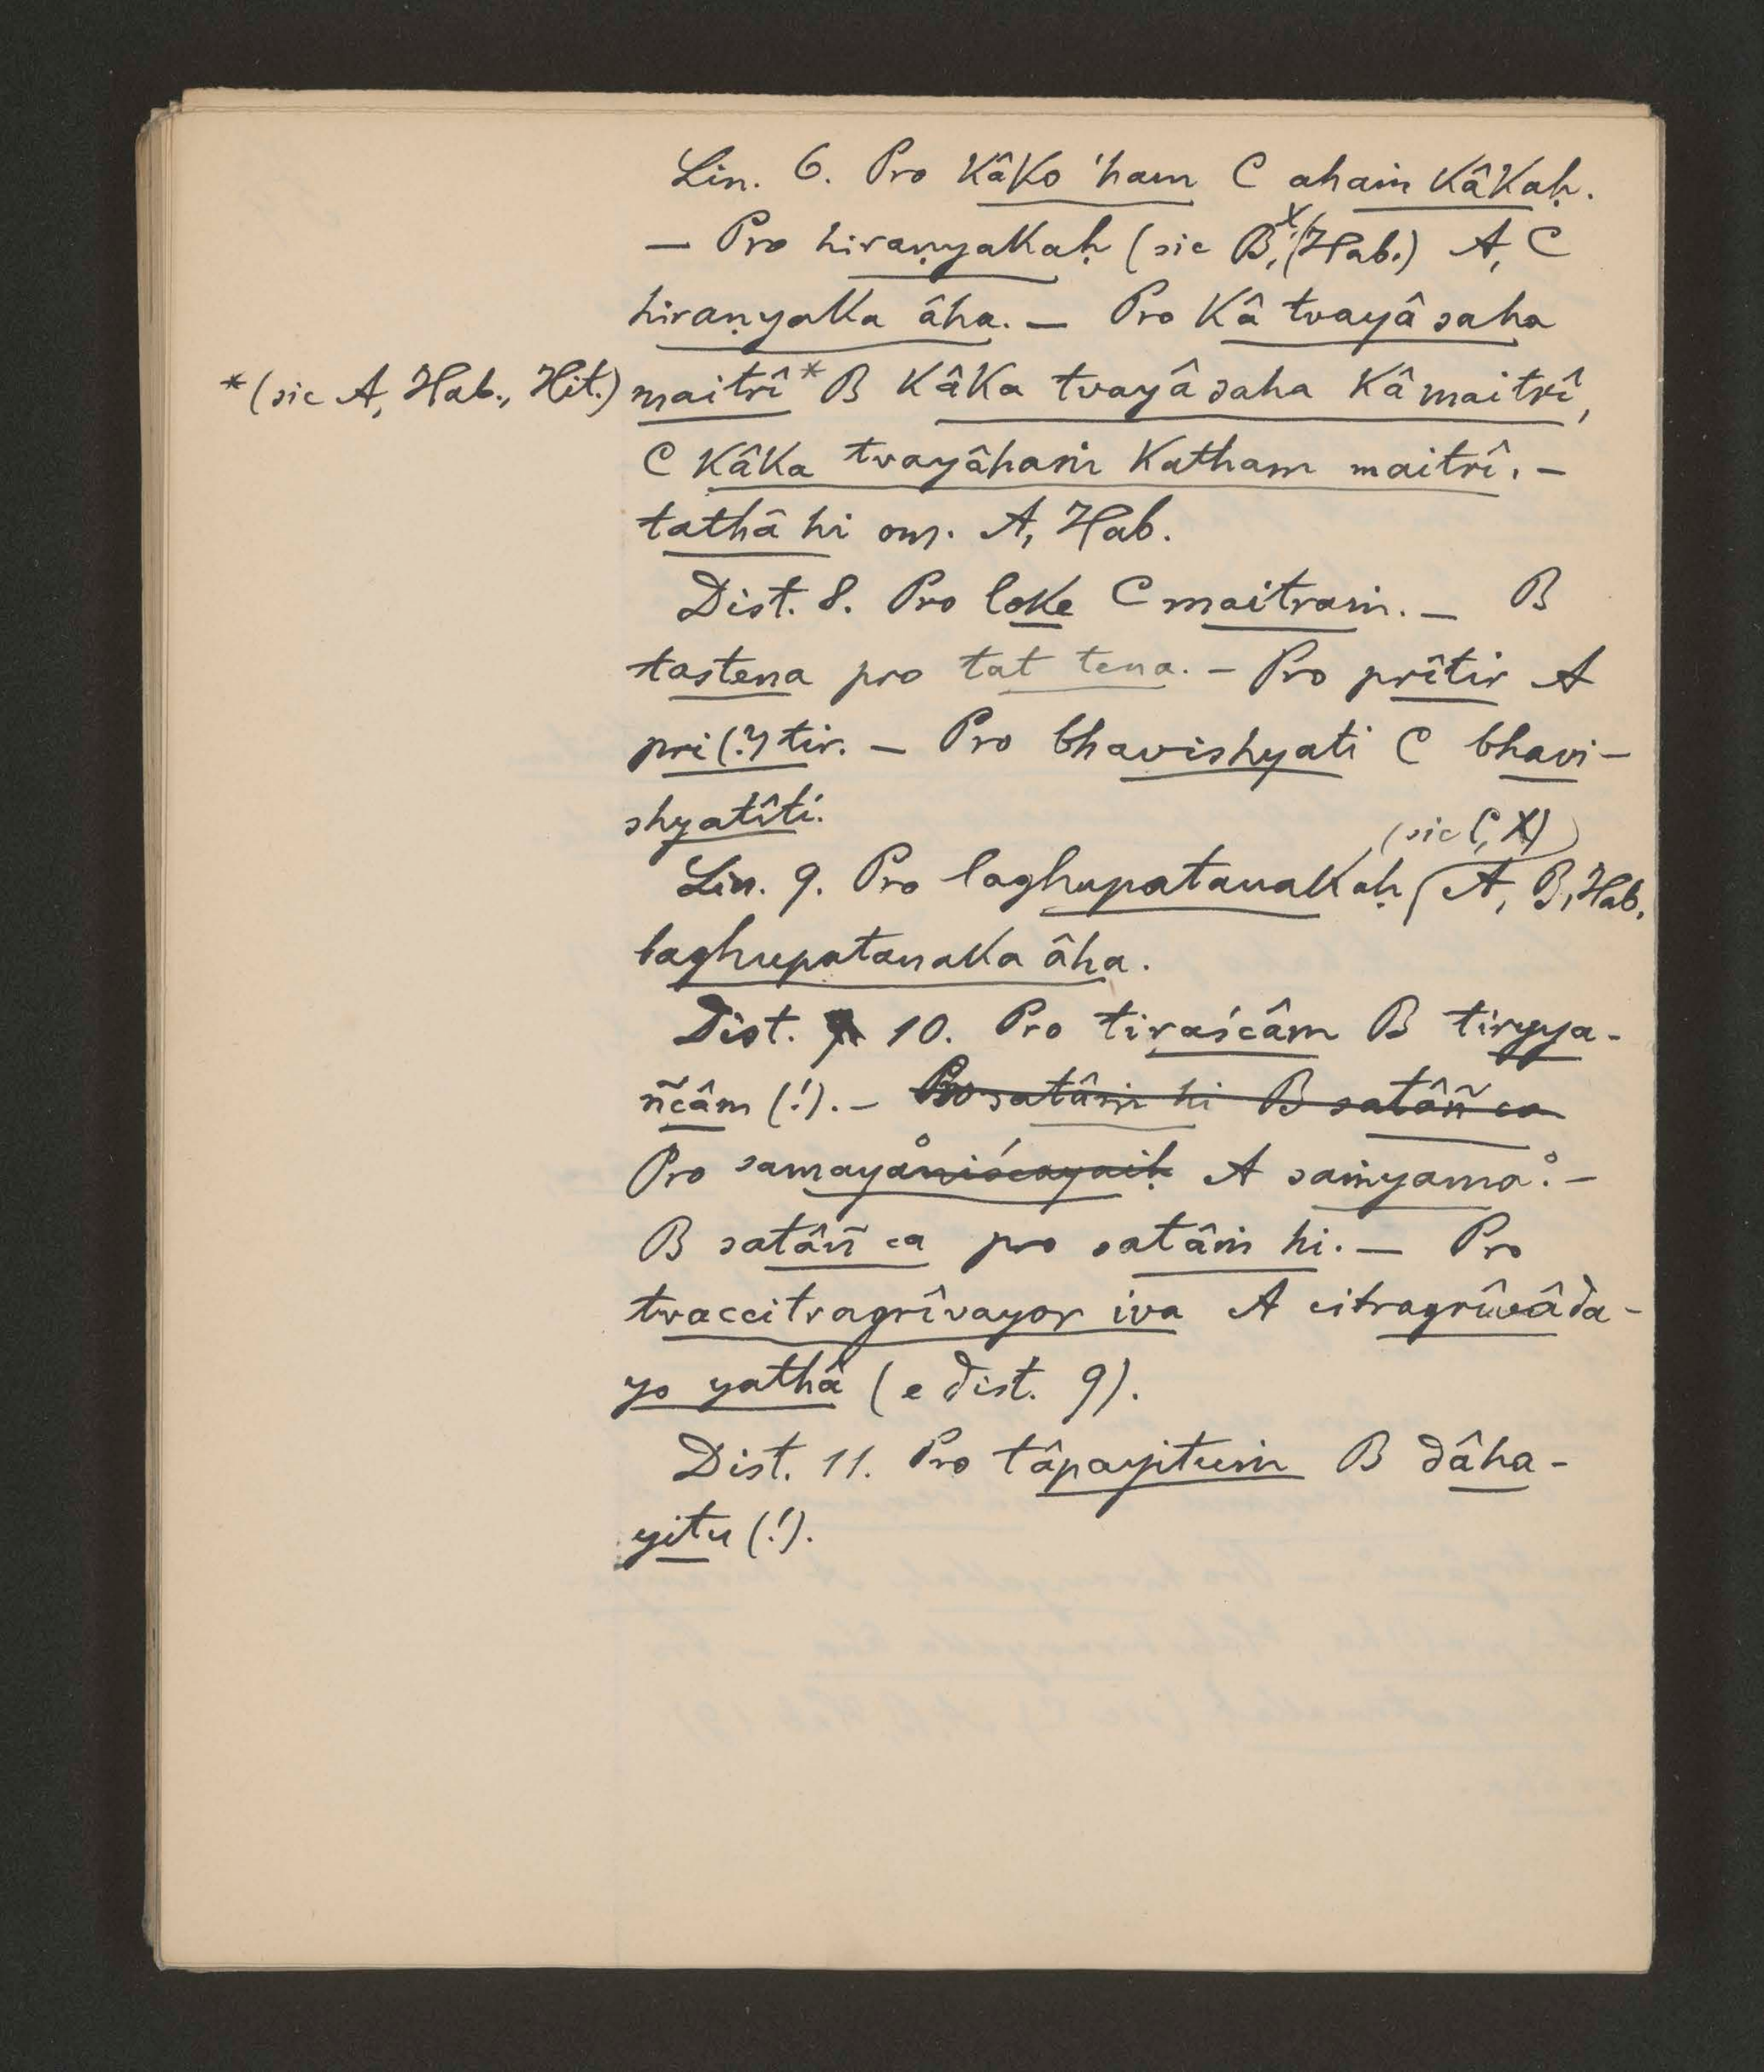 Lin. 6. Pro kâko 'ham C ahaṁ kâkaḥ.
— Pro hiraṇyakaḥ (sic B, X, Hab.) A, C
hiraṇyaka âha. — Pro kâ tvayâ saha
*(sic A, Hab., Hit.) maitrî* B kâka tvayâ saha kâ maitrî,
C kâka tvayâhaṁ katham maitrî. —
tathâ hi om. A, Hab.
Dist. 8. Pro loke C maitraṁ. — B
tastena pro tat tena. — Pro prîtir A
pri(?)tir. — Pro bhavishyati C bhavi-
shyatîti.
Lin. 9. Pro laghupatanakaḥ (sic C, X) A, B, Hab.
laghupatanaka âha.
Dist. 10. Pro tiraścâm B tiryya-
ñcâm (!). — Pro satâṁ hi B satâñ ca
Pro samayå niścayaiḥ A saṁyama°. —
B satâñ ca pro satâṁ hi. — Pro
tvaccitragrîvayor iva A citragrîvâda-
yo yathâ (e dist. 9).
Dist. 11. Pro tâpayituṁ B dâha-
yitu (!).